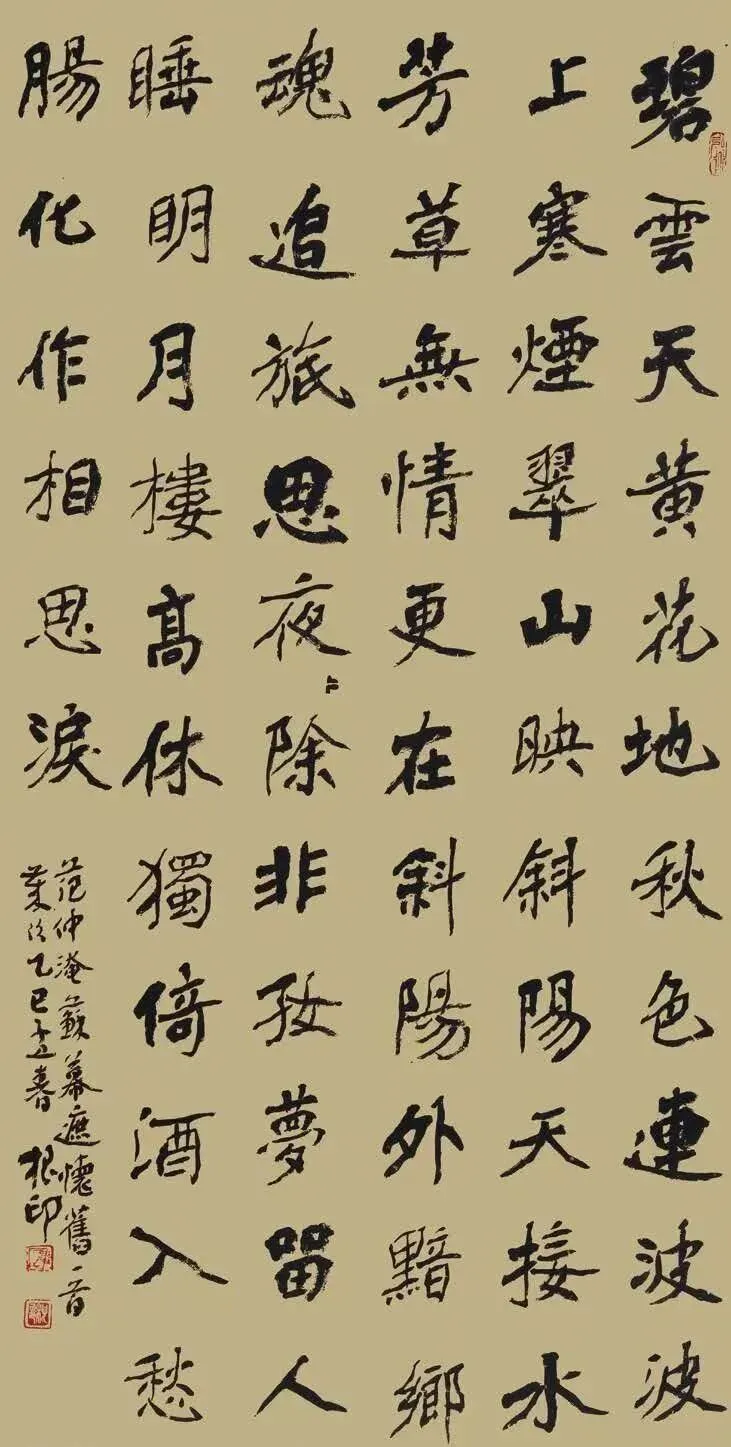 碧雲天黄花地秋色連波波
上寒煙翠山映斜陽天接水
芳草無情更在斜陽外黯鄉
魂追旅思夜々除非好夢留人
睡明月樓高休獨倚酒入愁
腸化作相思淚
范仲淹蘇幕遮懷舊一首
歲次乙巳春根印